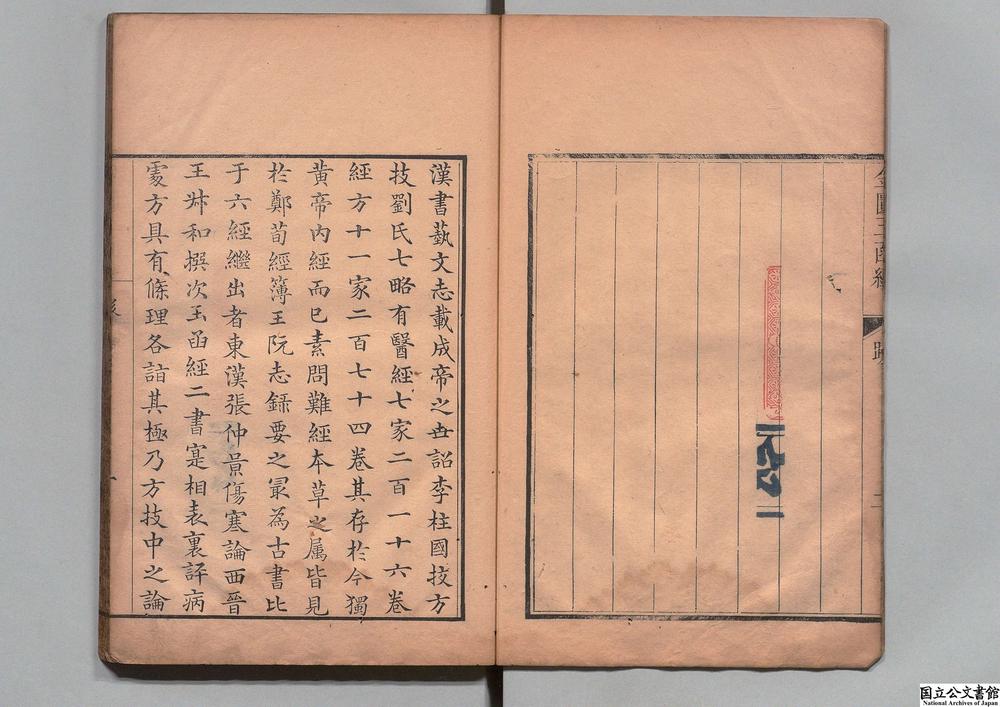 金匱玉函經
二
漢書藝文志載成帝之世詔李柱國技方
技劉氏七略有醫經七家二百一十六卷
經方十一家二百七十四卷其存於今獨
黄帝内經而已素問難經本草之属皆見
於鄭荀經簿王阮志録要之冣為古書比
于六經繼出者東漢張仲景傷寒論西晉
王叔和撰次玉函經二書寔相表裏評病
處方具有條理各詣其極乃方技中之論
国立公文書館
National Archives of Japan